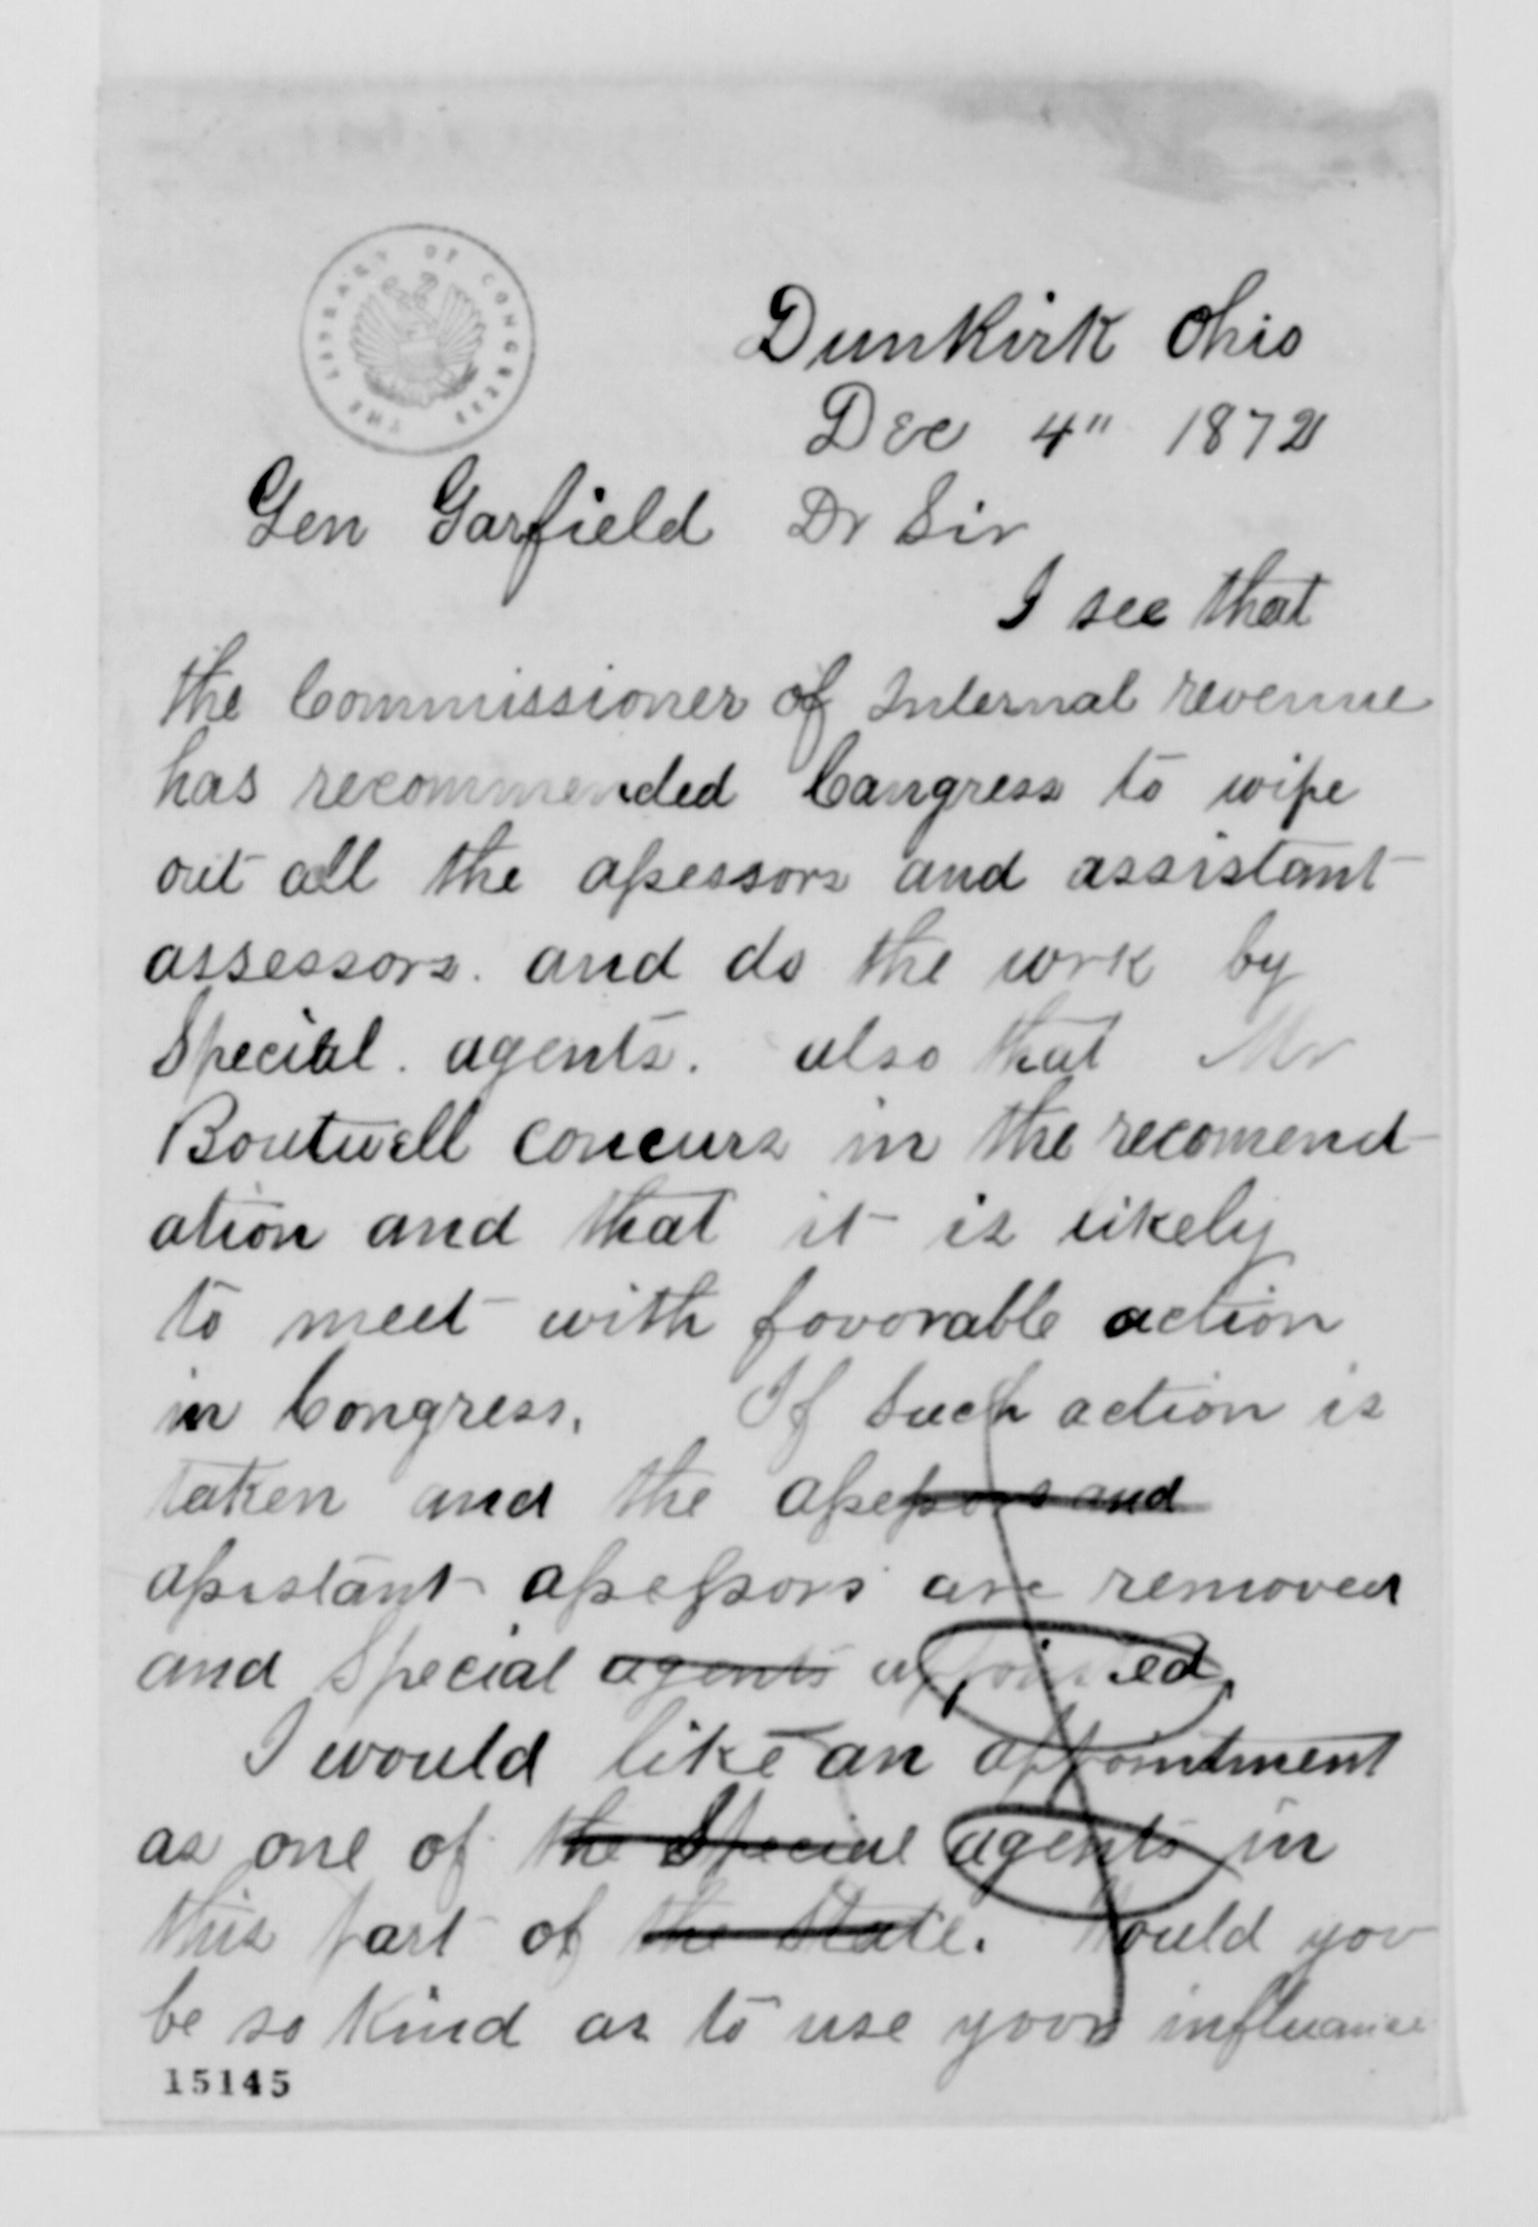 THE LIBRARY OF CONGRESS
Dunkirk Ohio
Dec 4" 1872
Gen Garfield Dr Sir
I see that
the Commissioner of Internal revenue
has recommended Congress to wipe
out all the assessors and assistant
assessors. and do the work by
Special. agents. also that Mr
Boutwell concurs in the recomend
ation and that it is likely
to meet with favorable action
in Congress. If such action is
taken and the assessors and
assistant assessors are removed
and Special agents appointed,
I would like an appointment
as one of the Special agents in
this part of the State. Would you
be so kind as to use your influance
15145